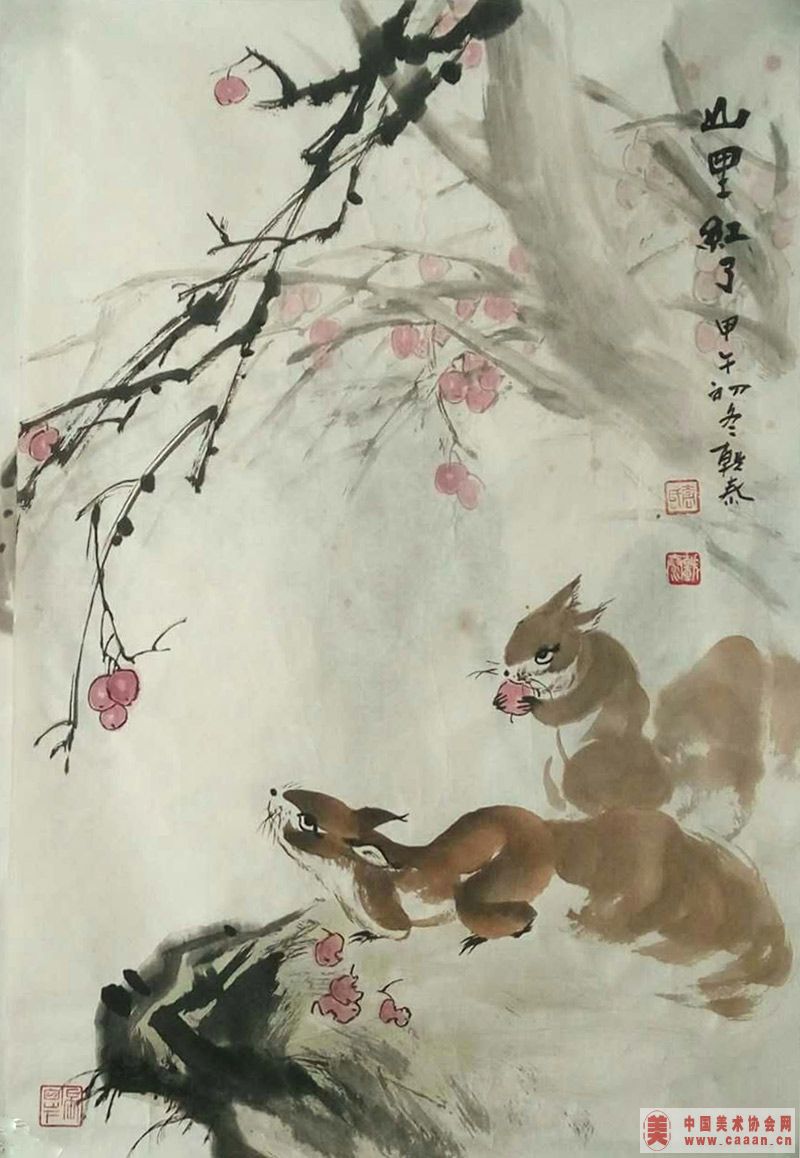 山里紅了
甲午初冬 泰
美
中国美术协会网
www.caaan.cn